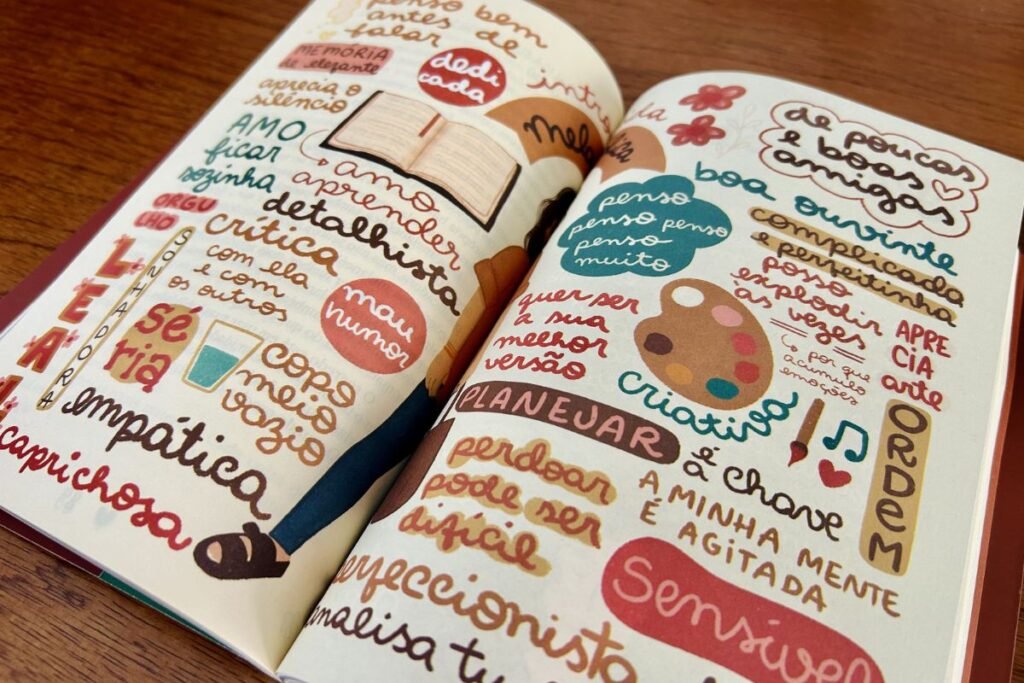 penso bem
antes de
falar
MEMÓRIA
de elefante
dedi
cada
aprecia o
silêncio
AMO
ficar
sozinha
amo
aprender
detalhista
ORGU
LHO
LEAL
SONHADORA
crítica
com ela
e com
os outros
mau
humor
sé
ria
copo
meio
vazio
empática
caprichosa
de poucas
e boas
amigas
boa ouvinte
penso
penso penso
penso
muito
complicada
e perfeitinha
posso
explodir
às
vezes
por que
acumulo
emoções
APRE
CIA
arte
quer ser
a sua
melhor
versão
criativa
PLANEJAR
é a chave
ORDEM
perdoar
pode ser
difícil
A MINHA MENTE
É AGITADA
perfeccionista
analisa tu
Sensível